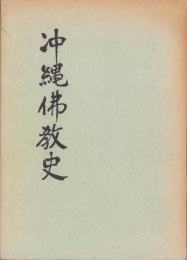 沖縄佛教史